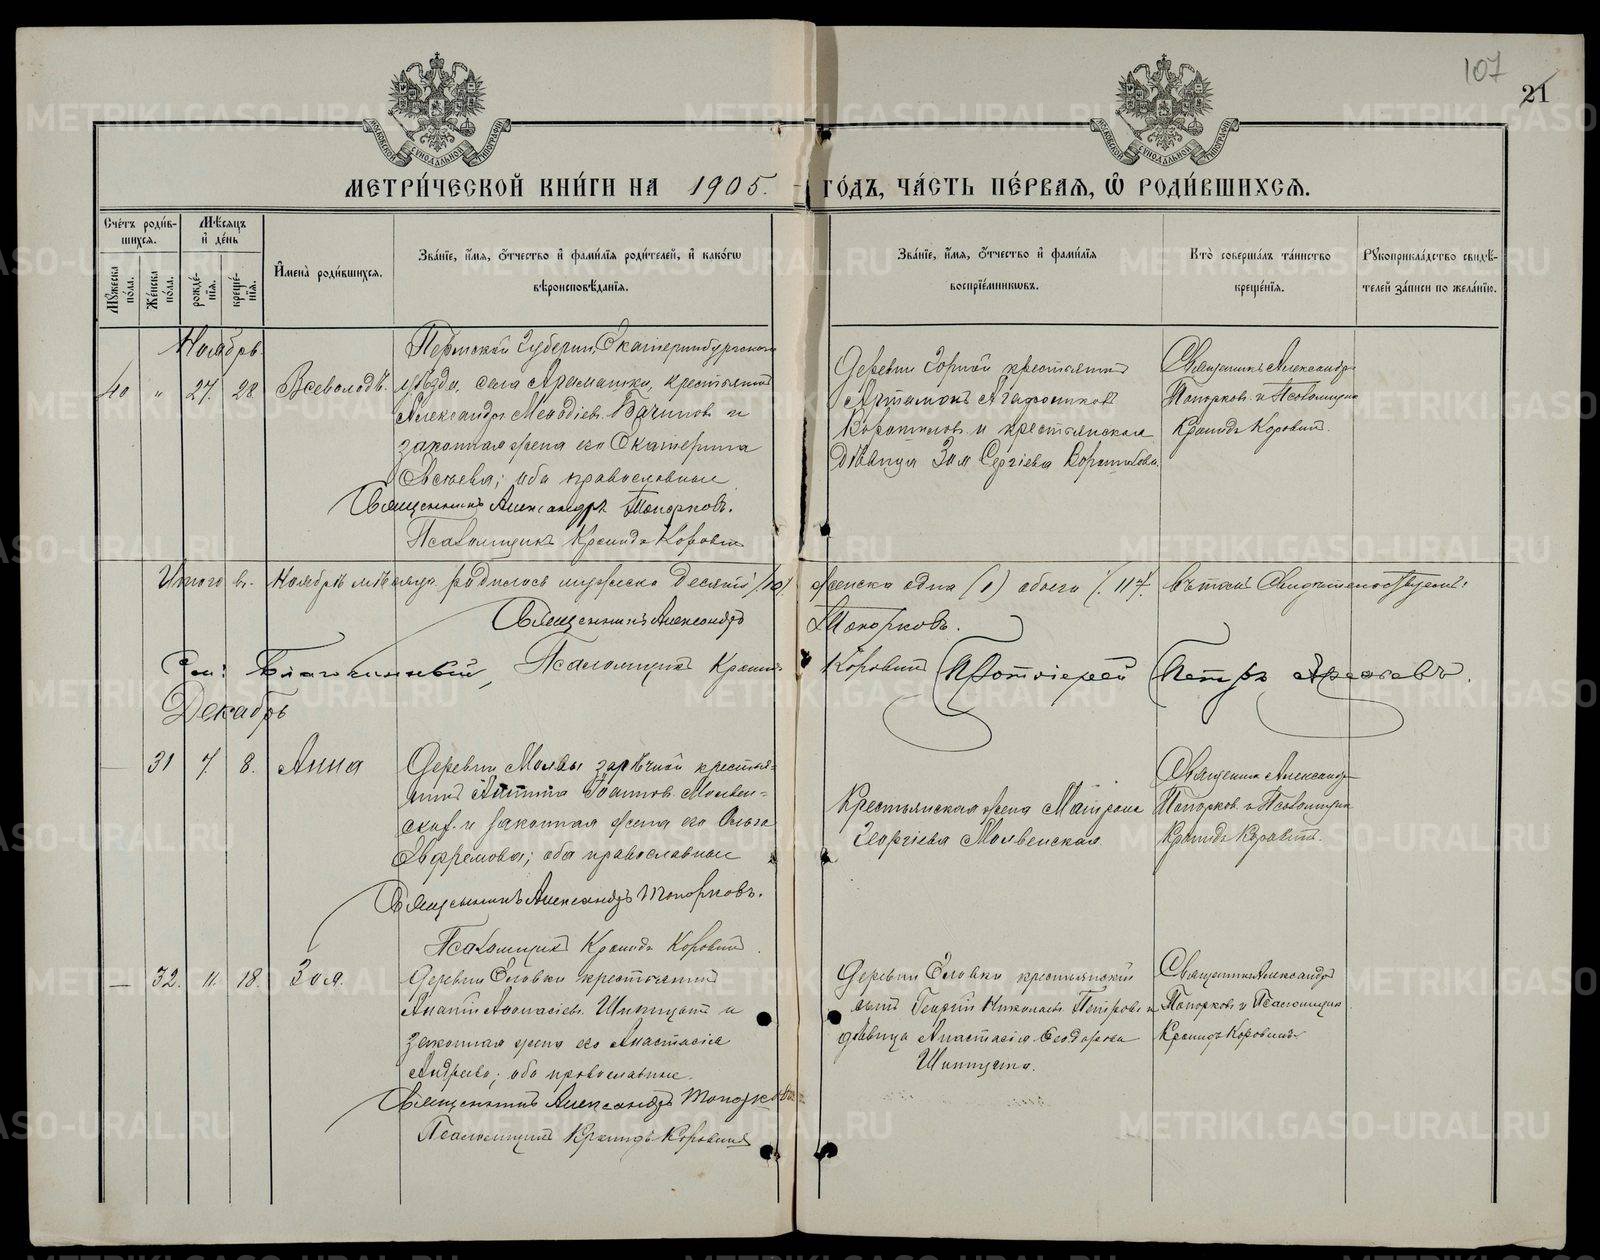 107
21
МЕТРИ́ЧЕСКОЙ КНИ́ГИ НА 1905. ГО́ДЪ, ЧА́СТЬ ПЕ́РВАЯ, Ѡ РОДИ́ВШИХСЯ.
Сче́тъ роди́в-
шихся.
Му́жеска по́ла.
Же́нска по́ла.
Мѣ́сяцъ и де́нь
рожде́-
нїя.
креще́-
нїя.
Имена̀ роди́вшихся.
Зва́нїе, и́мя, о́тчество и фами́лїя роди́телей, и како́гѡ
вѣроисповѣ́данїя.
Зва́нїе, и́мя, о́тчество и фами́лїя
воспрїе́мниковъ.
Кто̀ соверша́лъ та́инство
креще́нїя.
Рукоприкла́дство свидѣ́-
телей за́писи по жела́нїю.
Ноябрь
40 " 27. 28 Всеволодъ.
Пермской Губернии, Екатеринбургского
уѣзда, села Арамашки, крестьянинъ
Александръ Меѳодіевъ и
законная жена его Екатерина
оба православные
Священникъ Александръ Топорковъ.
Псаломщикъ Кронидъ Коровинъ
Деревни крестьянинъ
Артамонъ Агафониковъ
и крестьянская
дѣвица Зоя Сергіева
Священникъ Александръ
Топорковъ и Псаломщикъ
Кронидъ Коровинъ.
Итого въ Ноябрѣ мѣсяцѣ родилось мужеска десять /10/ женска одна (1) обоего /11/. въ томъ свидѣтельствуемъ:
Священникъ Александръ Топорковъ.
Благочинный, Псаломщикъ Кронидъ Коровинъ Протоіерей Петръ
Декабрь
— 31 7. 8. Анна
Деревни Молвы зарѣчной крестья-
нинъ Іоанновъ Молвен-
скій и законная жена его Ольга
Ефремова; оба православные
Священникъ Александръ Топорковъ.
Псаломщикъ Кронидъ Коровинъ.
Крестьянская жена Матрона
Георгіева Молвенская
Священникъ Александръ
Топорковъ и Псаломщикъ
Кронидъ Коровинъ.
— 32. 11. 18. Зоя.
Деревни Еловки крестьянинъ
Ананій Аѳанасіевъ Шипицинъ и
законная жена его Анастасія
Андреева; оба православные.
Священникъ Александръ Топорковъ
Псаломщикъ Кронидъ Коровинъ
Деревни Еловки крестьянскій
сынъ Георгій Николаевъ Петровъ и
дѣвица Анастасія Ѳеодорова
Шипицина.
Священникъ Александръ
Топорковъ и Псаломщикъ
Кронидъ Коровинъ
METRIKI.GASO-URAL.RU